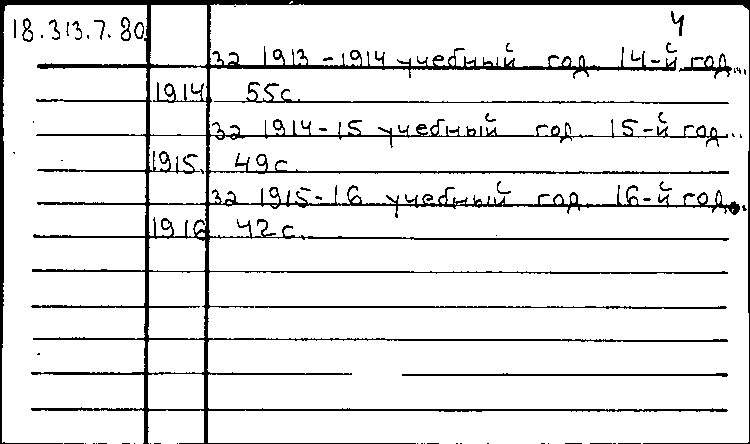 4
18.313.7.80
за 1913-1914 учебный год. 14-й год...
1914. 55с.
за 1914-15 учебный год. 15-й год...
1915. 49с.
за 1915-16 учебный год. 16-й год...
1916 42с.